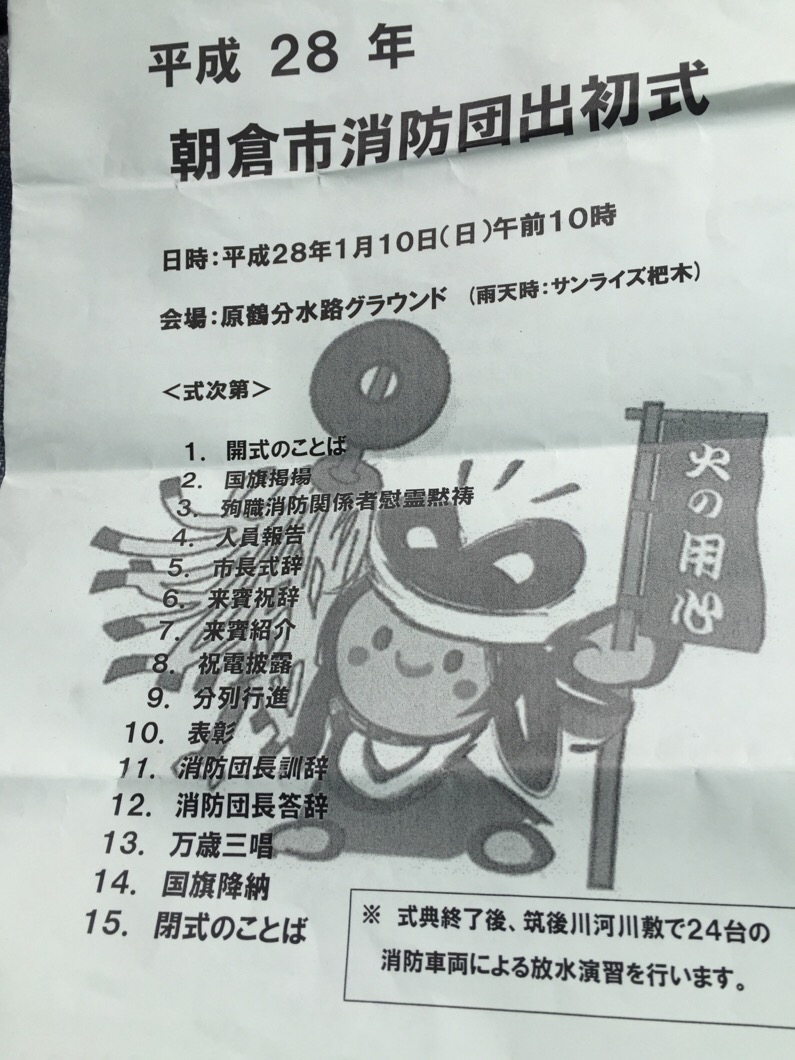 平成 28 年
朝倉市消防団出初式
日時：平成28年1月10日（日）午前10時
会場：原鶴分水路グラウンド （雨天時：サンライズ杷木）
＜式次第＞
1. 開式のことば
2. 国旗掲揚
3. 殉職消防関係者慰霊黙祷
4. 人員報告
5. 市長式辞
6. 来賓祝辞
7. 来賓紹介
8. 祝電披露
9. 分列行進
10. 表彰
11. 消防団長訓辞
12. 消防団長答辞
13. 万歳三唱
14. 国旗降納
15. 閉式のことば
火の用心
※ 式典終了後、筑後川河川敷で24台の
消防車両による放水演習を行います。